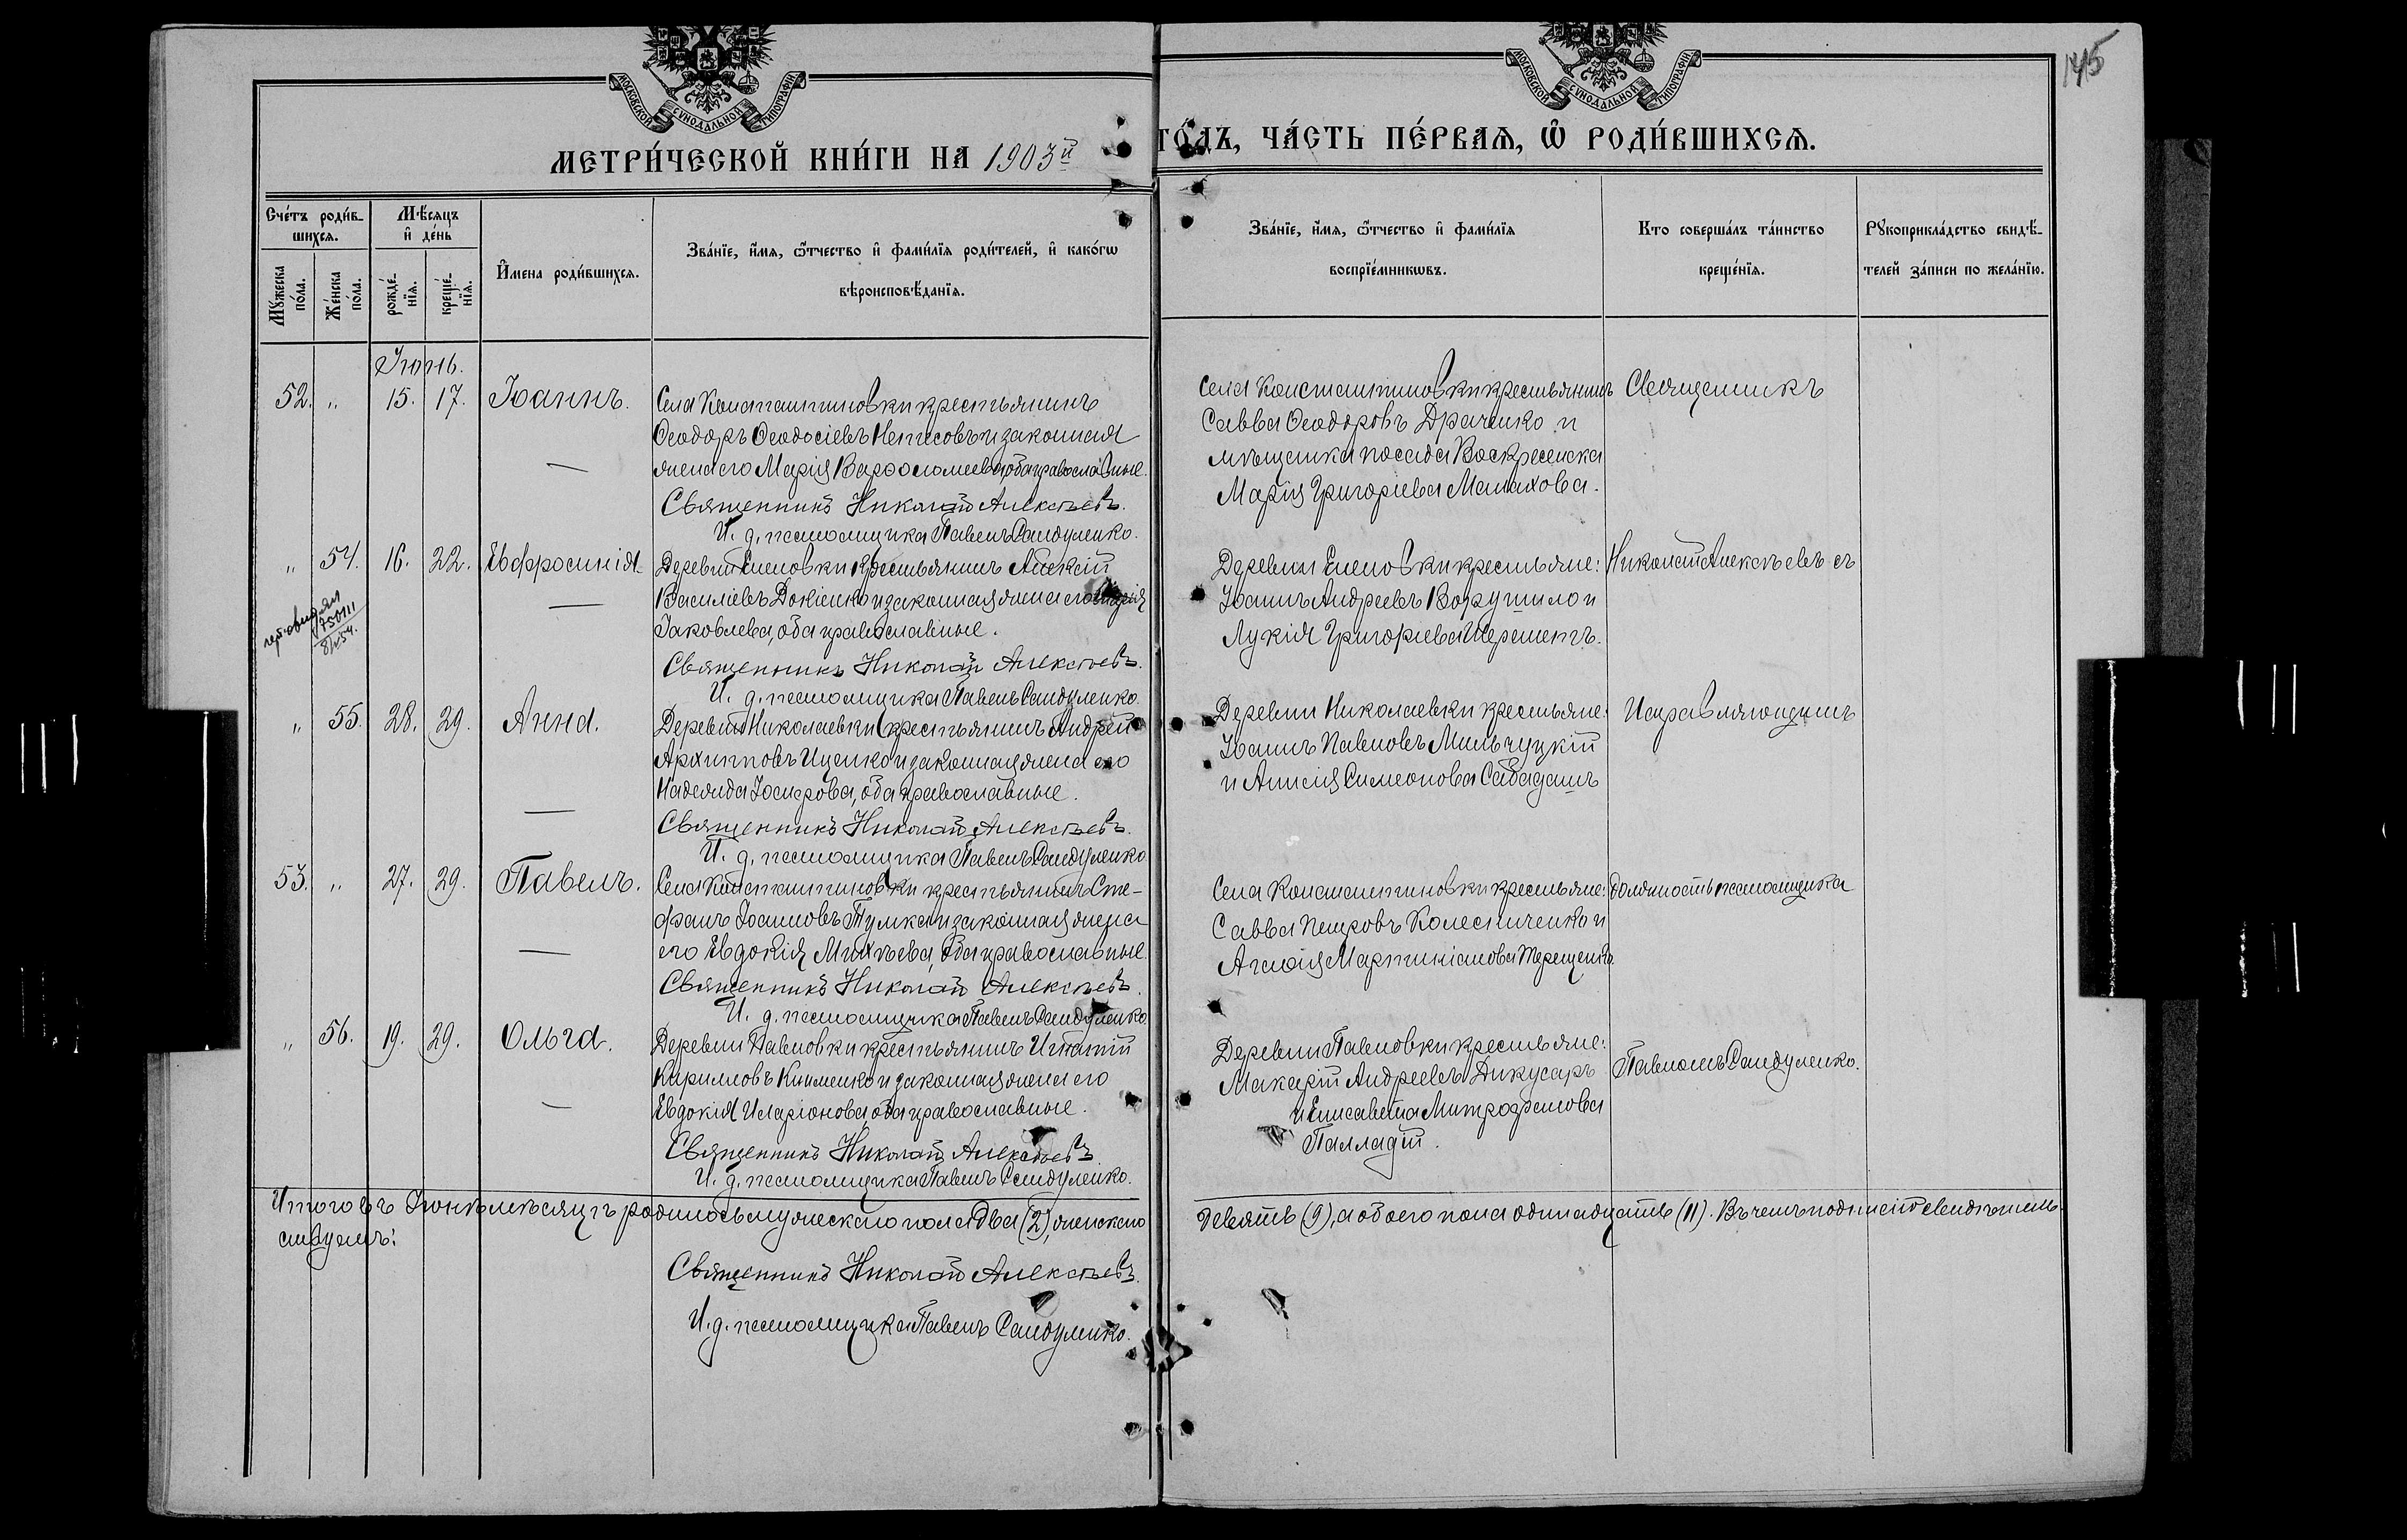 145
МОСКОВСКОЙ СУНОДАЛЬНОЙ ТИПОГРАФІИ
МОСКОВСКОЙ СУНОДАЛЬНОЙ ТИПОГРАФІИ
МЕТРИ́ЧЕСКОЙ КНИ́ГИ НА 1903й
ГО́ДЪ, ЧА́СТЬ ПЕ́РВАѦ, Ѡ РОДИ́ВШИХСѦ.
Сче́тъ роди́в-
шихсѧ.
Мꙋжеска по́ла.
Же́нска по́ла.
Мѣ́сяцъ
и҆ де́нь
рожде́-
нїѧ.
креще́-
нїѧ.
И҆мена роди́вшихсѧ.
Зва́нїе, и҆́мѧ, ѻ҆́тчество и҆ фами́лїѧ роди́телей, и҆ како́гѡ
вѣроисповѣ́данїѧ.
Зва́нїе, и҆́мѧ, ѻ҆́тчество и҆ фами́лїѧ
воспрїе́мникѡвъ.
Кто соверша́лъ та́инство
креще́нїѧ.
Рꙋкоприкла́дство свидѣ́-
телей за́писи по жела́нїю.
Іюнь.
52. „ 15. 17. Іоаннъ.
Села Константиновки крестьянинъ
Ѳеодоръ Ѳеодосіевъ и законная
жена его Марія Варѳоломеева, оба православные.
Священникъ Николай Алексѣевъ.
И. д. псаломщика Павелъ Сандуленко.
Села Константиновки крестьянинъ
Савва Ѳеодоровъ Драченко и
мѣщанка посада Воскресенска
Марія Григоріева Малахова.
Священникъ
„ 54. 16. 22. Евфросинія
Деревни Еленовки крестьянинъ Алексій
Василіевъ Докіенко и законная жена его Марія
Іаковлева, оба православные.
Священникъ Николай Алексѣевъ.
И. д. псаломщика Павелъ Сандуленко.
Деревни Еленовки крестьяне:
Іоаннъ Андреевъ Ворушило и
Лукія Григоріева Шереметъ.
Николай Алексѣевъ съ
„ 55. 28. 29. Анна.
Деревни Николаевки крестьянинъ Андрей
Архипповъ Иценко и законная жена его
Надежда Іосифова, оба православные.
Священникъ Николай Алексѣевъ.
И. д. псаломщика Павелъ Сандуленко.
Деревни Николаевки крестьяне:
Іоаннъ Павловъ Мильчуцкій
и Анисія Симеонова Сабадашъ
Исправляющимъ
53. „ 27. 29. Павелъ.
Села Константиновки крестьянинъ Сте-
фанъ Іоанновъ Тумка и законная жена
его Евдокія Михѣева, оба православные.
Священникъ Николай Алексѣевъ.
И. д. псаломщика Павелъ Сандуленко.
Села Константиновки крестьяне:
Савва Петровъ Колесниченко и
Агафія Мартиніанова Терещенко.
должность псаломщика
„ 56. 19. 29. Ольга.
Деревни Павловки крестьянинъ Игнатій
Кирилловъ Клименко и законная жена его
Евдокія Иларіонова, оба православные.
Священникъ Николай Алексѣевъ.
И. д. псаломщика Павелъ Сандуленко.
Деревни Павловки крестьяне:
Макарій Андреевъ Дикусаръ
и Елисавета Митрофанова
Палладій.
Павломъ Сандуленко.
Итого въ Іюнѣ мѣсяцѣ родилось мужескаго пола два (2), женскаго
девять (9), а обоего пола одинадцать (11). Въ чемъ подписью свидѣтель-
ствуемъ:
Священникъ Николай Алексѣевъ.
И. д. псаломщика Павелъ Сандуленко.